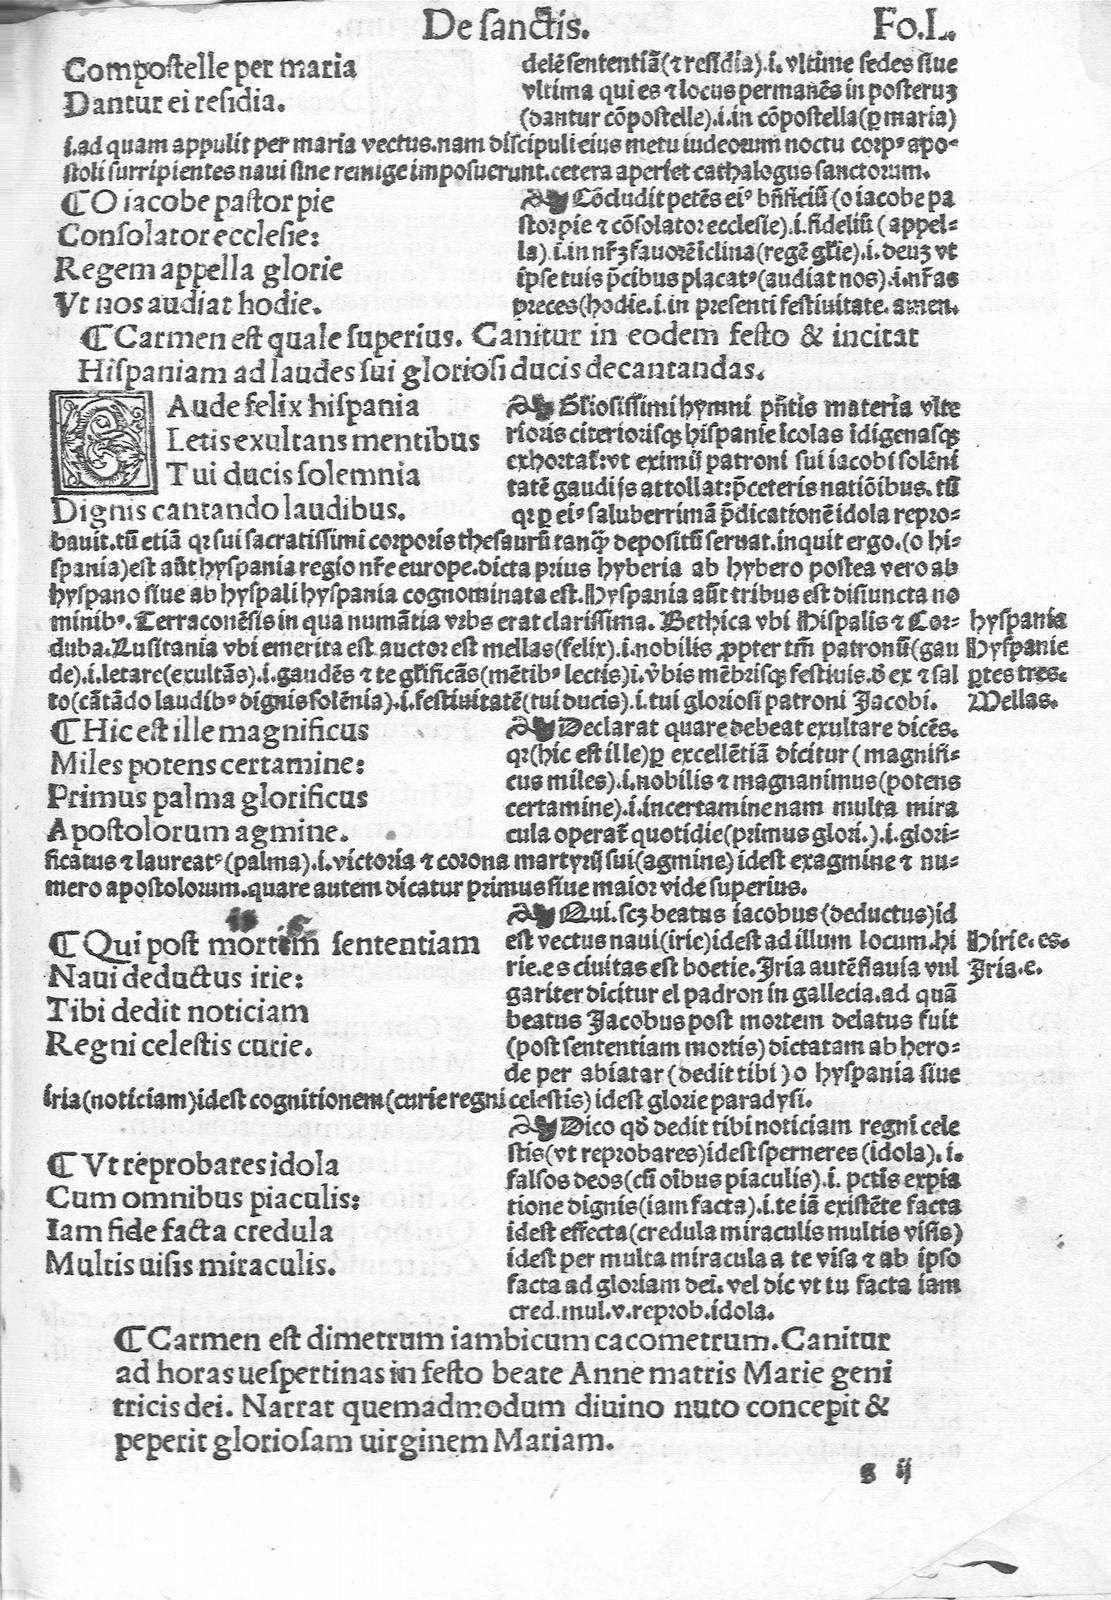 De sanctis. Fo.L.
Compostelle per maria
Dantur ei residia.
delẽ sententiã(⁊ residia).i. vltime sedes siue
vltima qui es ⁊ locus permanẽs in posteruꝫ
(dantur cõpostelle).i.in cõpostella(ꝑ maria)
i.ad quam appulit per maria vectus.nam discipuli eius metu iudeorum noctu corpꝰ apo-
stoli surripientes naui sine remige imposuerunt.cetera aperiet cathalogus sanctorum.
¶ O iacobe pastor pie
Consolator ecclesie:
Regem appella glorie
Vt nos audiat hodie.
Cõcludit petẽs eiꝰ bñficiũ (o iacobe pa
stor pie ⁊ cõsolator ecclesie).i.fideliũ (appel-
la).i.in nr̃ꝫ fauorẽ ĩclina(regẽ gľie).i.deuꝫ vt
ipse tuis p̃cibus placatꝰ(audiat nos).i.nr̃as
preces(hodie.i.in presenti festiuitate.amen.
¶ Carmen est quale superius. Canitur in eodem festo & incitat
Hispaniam ad laudes sui gloriosi ducis decantandas.
GAude felix hispania
Letis exultans mentibus
Tui ducis solemnia
Dignis cantando laudibus.
Gľiosissimi hymni pñtis materia vlte
rioris citeriorisqꝫ hispanie ĩcolas ĩdigenasqꝫ
exhortat᷑:vt eximij patroni sui iacobi solẽni
tatẽ gaudijs attollat:p̃ceteris natiõibus.tũ
qꝛ ꝑ eiꝰ saluberrimã p̃dicationẽ idola repro-
bauit.tũ etiã qꝛ sui sacratissimi corporis thesaurũ tanq̃ʒ depositũ seruat.inquit ergo.(o hi-
spania)est aũt hyspania regio nr̃e europe.dicta prius hyberia ab hybero postea vero ab
hyspano siue ab hyspali hyspania cognominata est.Hyspania aũt tribus est disiuncta no
minibꝰ. Terraconẽsis in qua numãtia vrbs erat clarissima. Bethica vbi Hispalis ⁊ Cor-
duba.Lusitania vbi emerita est auctor est mellas(felix).i.nobilis ꝓpter tm̃ patronũ(gau
de).i.letare(exultãs).i.gaudẽs ⁊ te gľificãs(mẽtibꝰ lectis)i.v̓bis mẽbrisqꝫ festiuis.ꝺ ex ⁊ sal
to(cãtãdo laudibꝰ dignis solẽnia).i.festiuitatẽ(tui ducis).i.tui gloriosi patroni Jacobi.
hyspania
Hyspanie
ptes tres.
Mellas.
¶ Hic est ille magnificus
Miles potens certamine:
Primus palma glorificus
Apostolorum agmine.
Declarat quare debeat exultare dicẽs.
qꝛ(hic est ille)ꝑ excellẽtiã dicitur (magnifi-
cus miles).i.nobilis ⁊ magnanimus(potens
certamine).i.in certamine nam multa mira
cula operat᷑ quotidie(primus glori.).i.glori-
ficatus ⁊ laureatꝰ(palma).i.victoria ⁊ corona martyrij sui(agmine)idest exagmine ⁊ nu-
mero apostolorum.quare autem dicatur primus siue maior vide superius.
¶ Qui post mortem sententiam
Naui deductus irie:
Tibi dedit noticiam
Regni celestis curie.
Qui.scꝫ beatus iacobus(deductus)id
est vectus naui(irie)idest ad illum locum.hi
rie.es ciuitas est boetie.Jria autẽ flauia vul
gariter dicitur el padron in gallecia.ad quã
beatus Jacobus post mortem delatus fuit
(post sententiam mortis)dictatam ab hero-
de per abiatar(dedit tibi)o hyspania siue
iria(noticiam)idest cognitionem(curie regni celestis)idest glorie paradysi.
Hirie.es.
Iria.e.
¶ Vt reprobares idola
Cum omnibus piaculis:
Iam fide facta credula
Multis uisis miraculis.
Dico qď dedit tibi noticiam regni cele
stis(vt reprobares)idest sperneres(idola).i.
falsos deos(cũ oĩbus piaculis).i.pctis expia
tione dignis(iam facta).i.te iã existẽte facta
idest effecta(credula miraculis multis visis)
idest per multa miracula a te visa ⁊ ab ipso
facta ad gloriam dei.vel dic vt tu facta iam
cred.mul.v.reprob.idola.
¶ Carmen est dimetrum iambicum cacometrum. Canitur
ad horas uespertinas in festo beate Anne matris Marie geni
tricis dei. Narrat quemadmodum diuino nuto concepit &
peperit gloriosam uirginem Mariam.
g ij